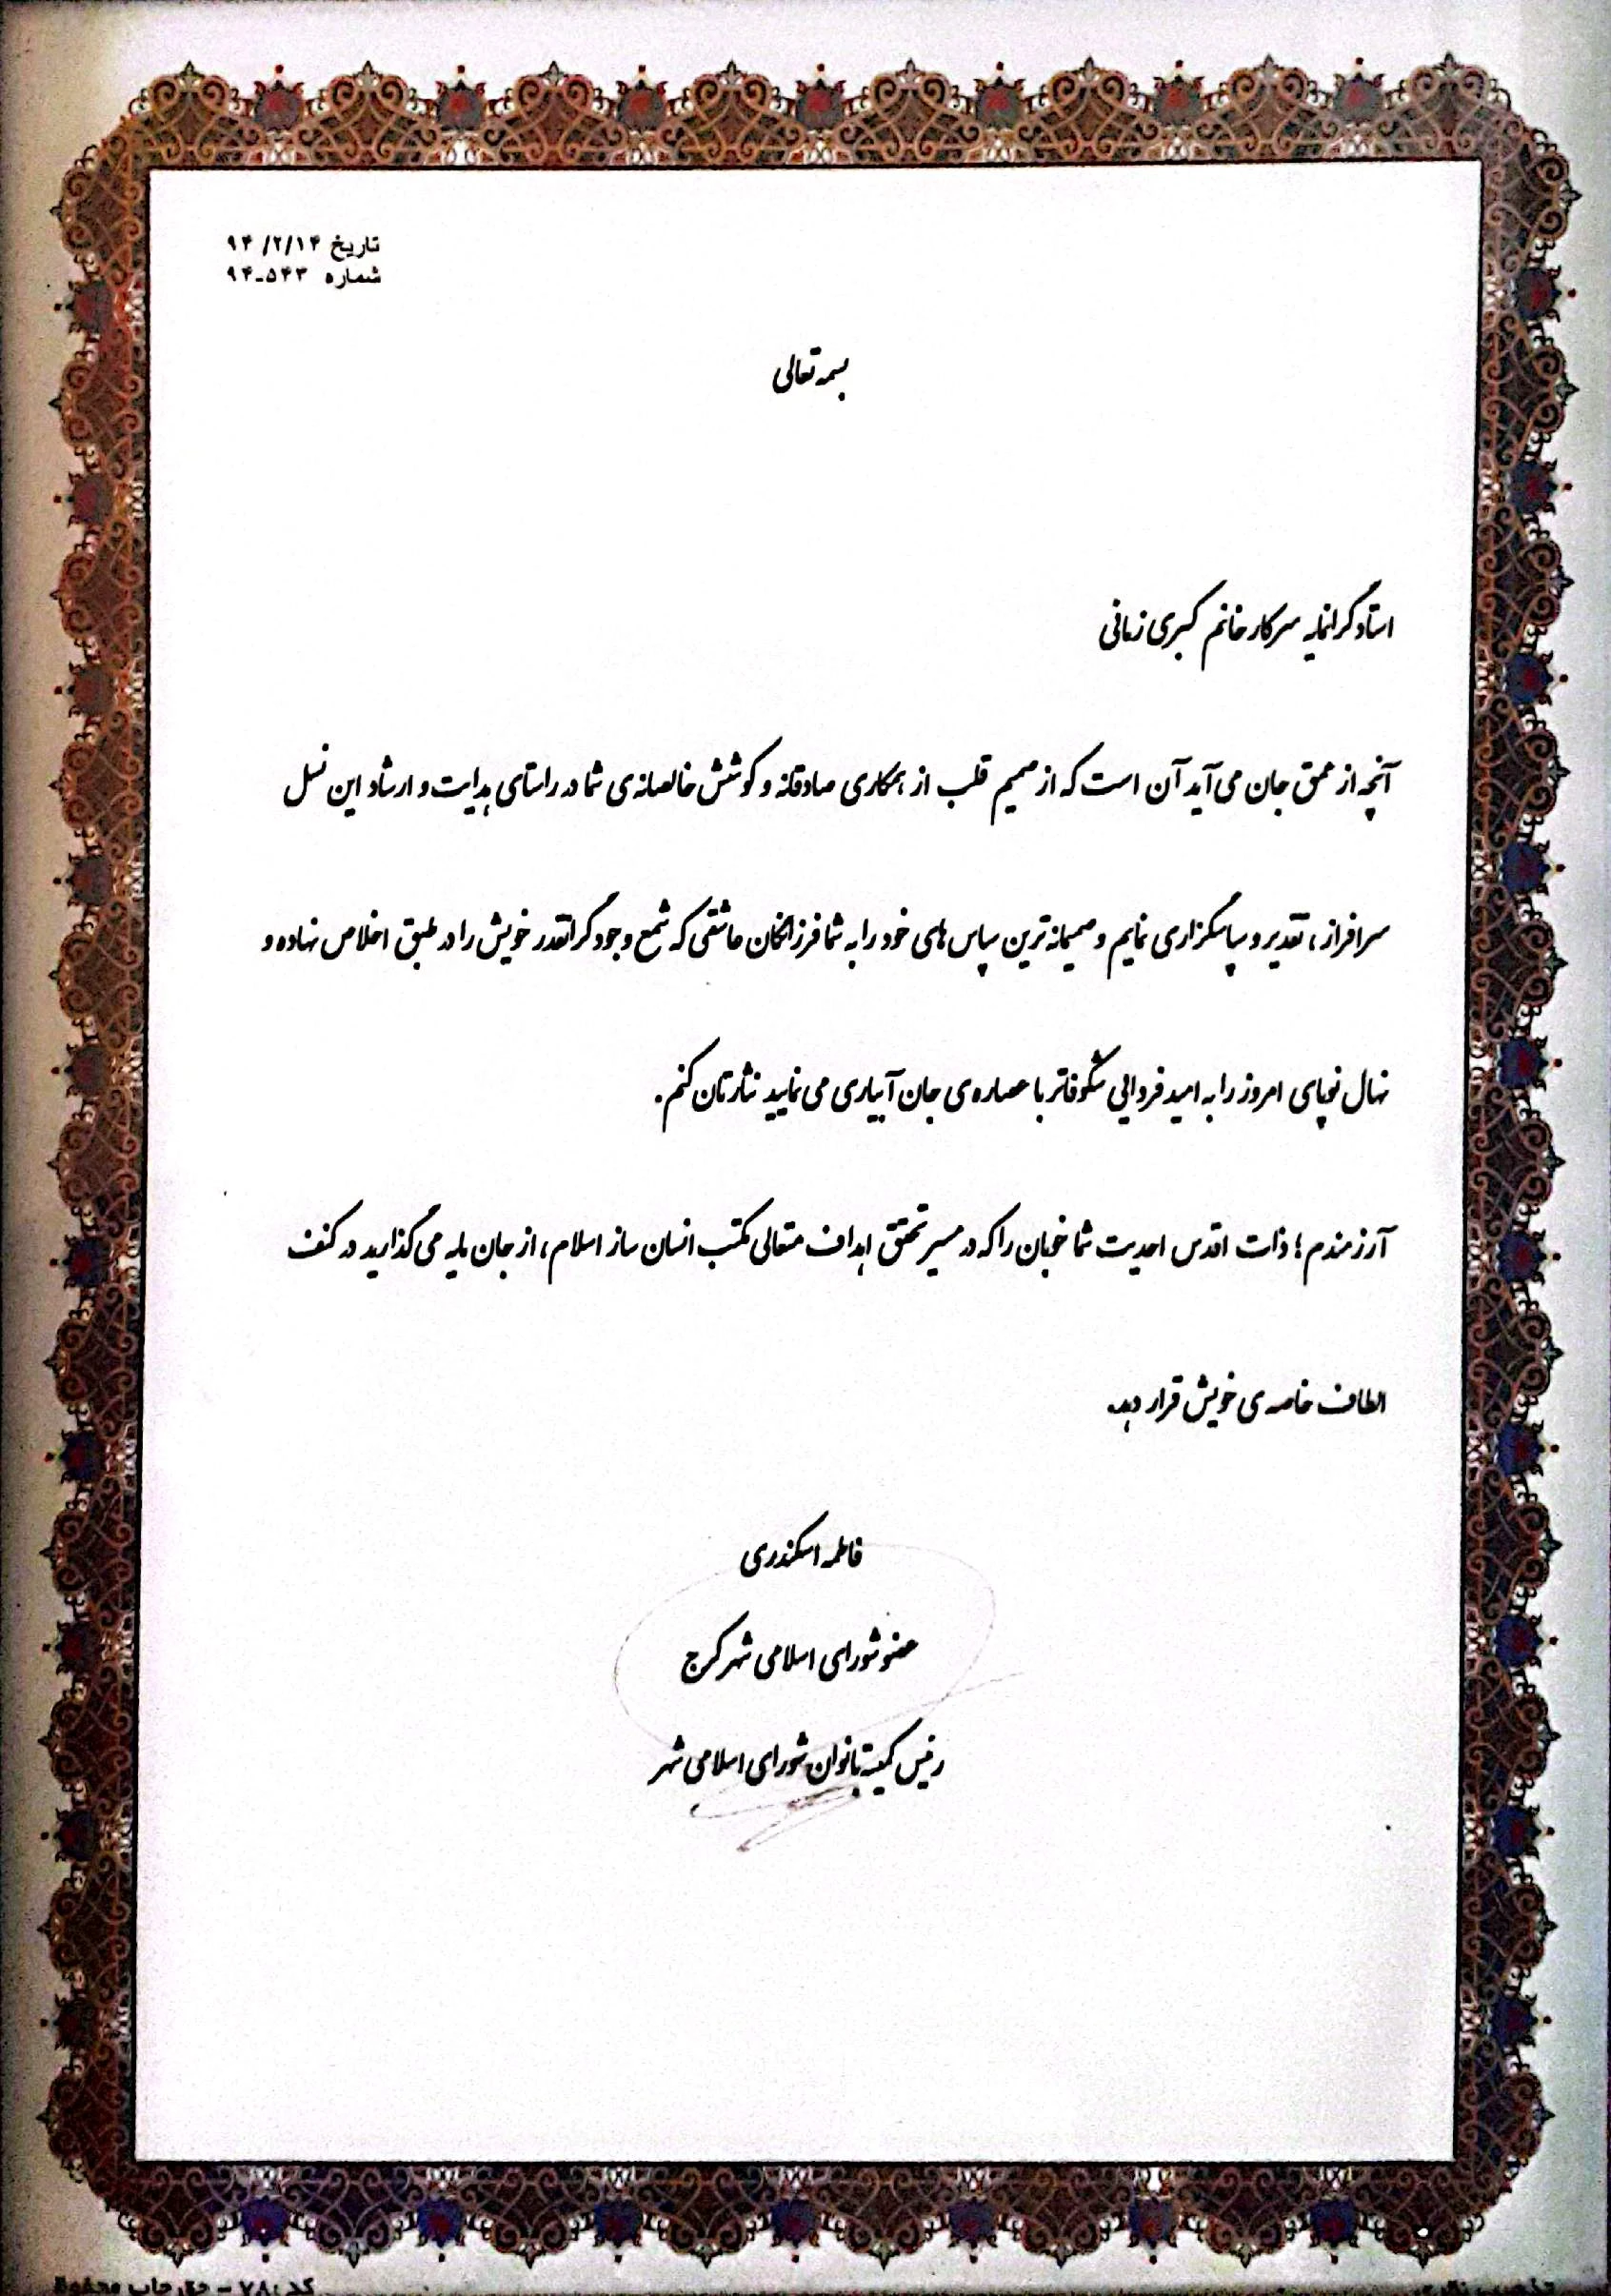 تاریخ ۹۴/۲/۱۴
شماره ۹۴-۵۴۳
بسمه تعالی
استاد گرانمایه سرکار خانم کبری زمانی
آنچه از عمق جان می آید آن است که از صمیم قلب از همکاری صادقانه و کوشش خالصانه ی شما در راستای هدایت و ارشاد این نسل
سرافراز، تقدیر و سپاسگزاری نمایم و صمیمانه ترین سپاس های خود را به شما فرزانگان عاشقی که شمع وجود گرانقدر خویش را در طبق اخلاص نهاده و
نهال نوپای امروز را به امید فردایی شکوفاتر با عصاره ی جان آبیاری می نمایید نثارتان کنم.
آرزمندم؛ ذات اقدس احدیت شما خوبان را که در مسیر تحقق اهداف متعالی مکتب انسان ساز اسلام، از جان مایه می گذارید در کنف
الطاف خاصه ی خویش قرار دهد.
فاطمه اسکندری
عضو شورای اسلامی شهر کرج
رئیس کمیته بانوان شورای اسلامی شهر
کد: ۷۸ - حق چاپ محفوظ